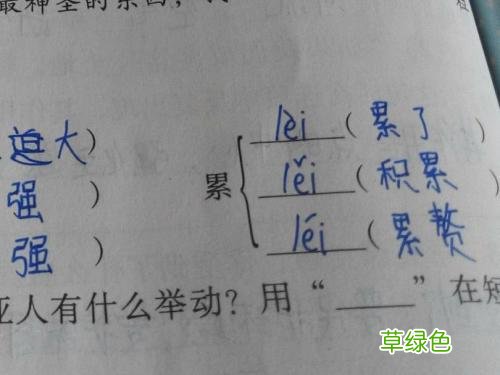 最神圣的东西，
大）
lèi（累了）
强 ）
累 lěi（积累）
强 ）
léi（累赘
亚人有什么举动？用“____”在短
草绿色